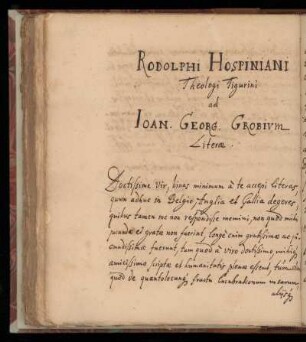 RODOLPHI HOSPINIANI
Theologi Tigurini
ad
IOAN. GEORG. GROBIVM
Literæ.
Doctissime vir, binas minimum à te accepi literas,
quum adhuc in Belgio, Anglia et Gallia degeres
quibus tamen me non respondisse memini, non quod mihi
jucundæ et gratæ non fuerint, longè enim gratissimæ ac ju-
cundissimæ fuerunt, tum quod à viro doctissimo mihi
amicissimo scriptæ et humanitatis plenæ essent, tum
quod de quantulocunq fructu lucubrationum mearum